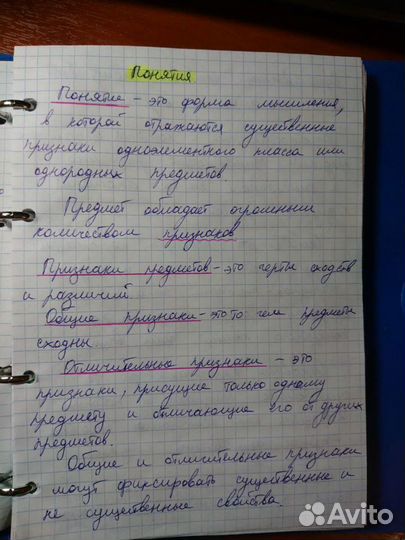 Понятия
Понятие - это форма мышления,
в которой отражаются существенные
признаки одноэлементного класса или
однородных предметов.
Предмет обладает огромным
количеством признаков
Признаки предметов - это черты сходств
и различий.
Общие признаки - это то чем предметы
сходны
Отличительные признаки - это
признаки, присущие только одному
предмету и отличающие его от других
предметов.
Общие и отличительные признаки
могут фиксировать существенные и
не существенные свойства.
Avito